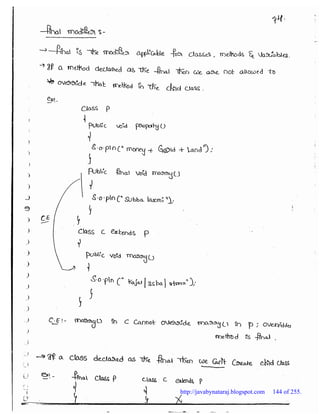 74.
final modifier :-
→ final is the modifier applicable for classes, methods & variables.
→ If a method declared as the final then we are not allowed to
override that method in the child class.
Ex:-
class P
{
public void property()
{
S.o.pln("money + Gold + Land");
}
public final void marry()
{
S.o.pln("Subba laxmi");
}
C.E
}
class C extends P
{
public void marry()
{
S.o.pln("Kajal|3sha|
");
}
}
C.E:- marry() in C cannot override marry() in P; overridden
method is final.
→ If a class declared as the final then we can't create child class
Ex:- final class P class C extends P
{ {
http://javabynataraj.blogspot.com 144 of 255.
} } X